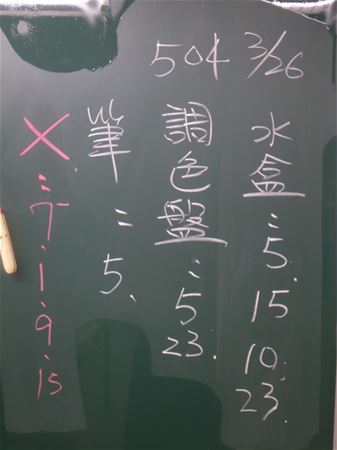 504 3/26
水盒：5、15 10、23、
調色盤：5 23、
筆：5、
X：7、1、9、15